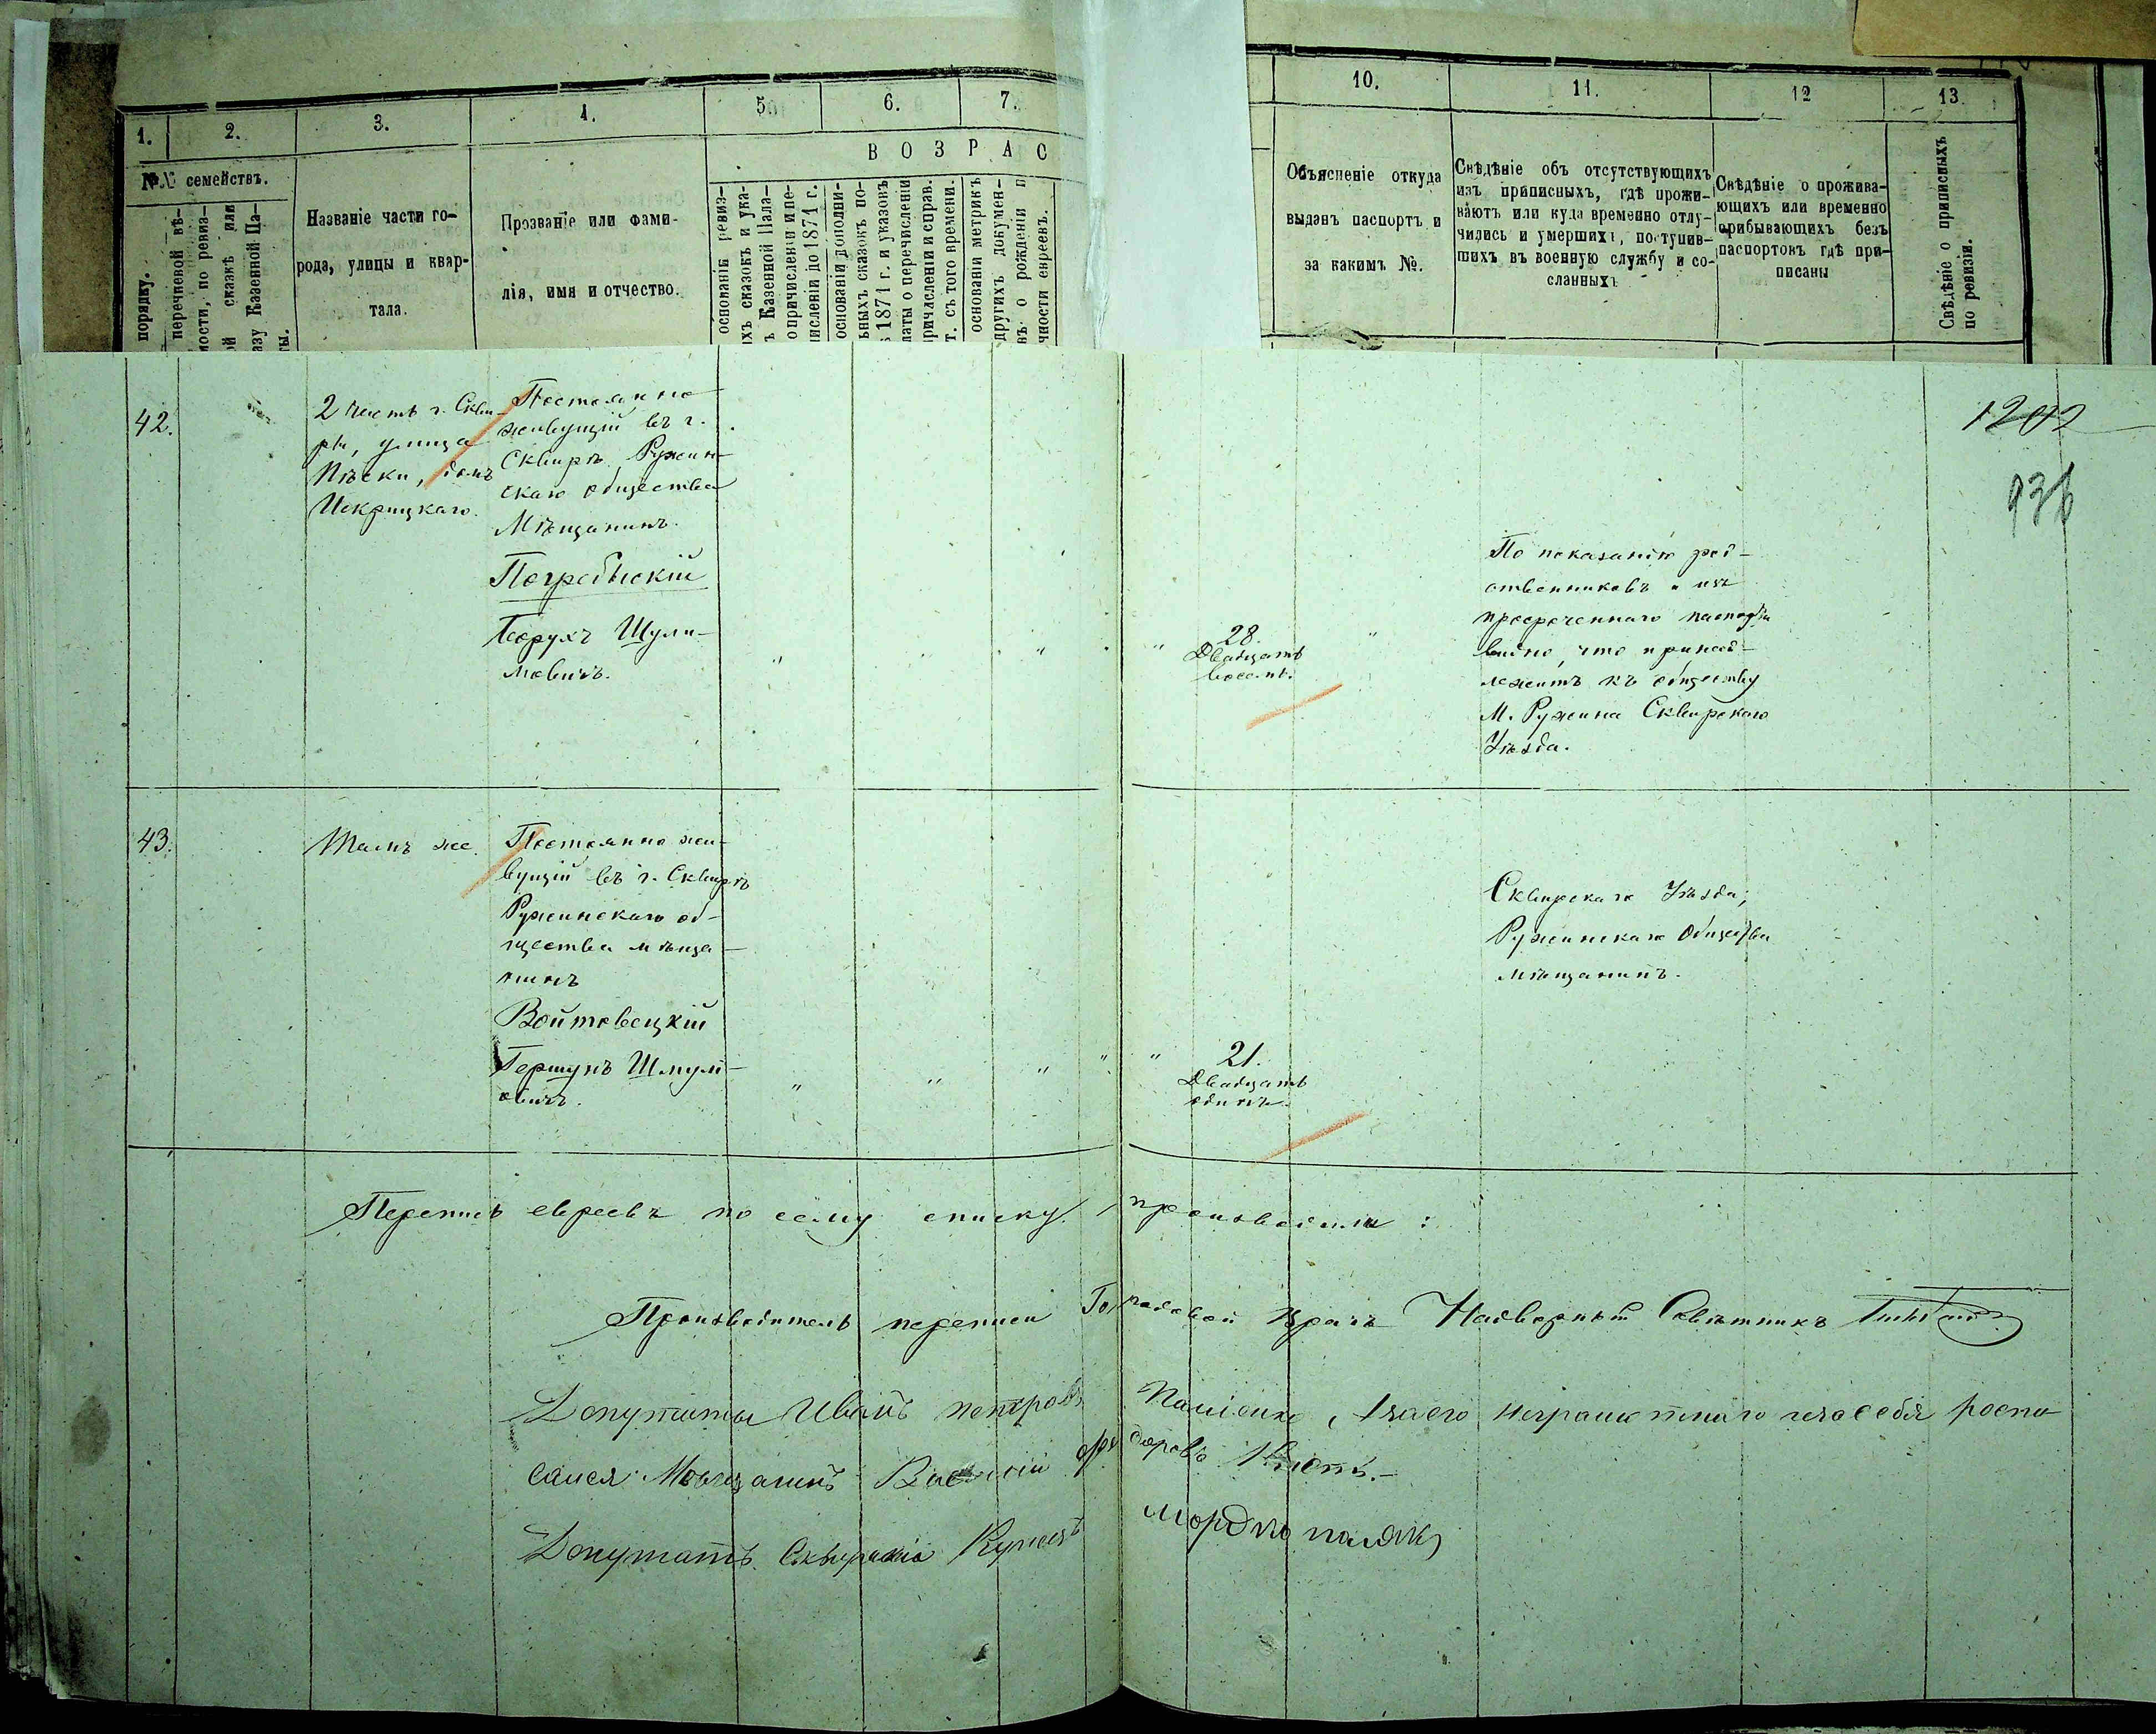 1.
2.
3.
4.
5.
6.
7.
10.
11.
12
13.
В О З Р А С
№№ семействъ.
порядку.
перечневой вѣ-
мости, по ревиз-
ой сказкѣ или
азу Казенной Па-
ты.
Названіе части го-
рода, улицы и квар-
тала.
Прозваніе или фами-
лія, имя и отчество.
основаніи ревиз-
ихъ сказокъ и ука-
ъ Казенной Пала-
о причисленіи и пе-
ислeніи до 1871 г.
основаніи дополни-
ьныхъ сказокъ по-
ѣ 1871 г. и указовъ
латы о перечислені
ричисленіи и справ.
т. съ того времени.
основаніи метрикъ
другихъ докумен-
въ о рожденіи и
чности евреевъ.
Объясненіе откуда
выданъ паспортъ и
за какимъ №.
Свѣдѣніе объ отсутствующихъ
изъ приписныхъ, гдѣ прожи-
ваютъ или куда временно отлу-
чились и умершихъ, поступив-
шихъ въ военную службу и со-
сланныхъ
Свѣдѣніе о прожива-
ющихъ или временно
прибывающихъ безъ
паспортовъ гдѣ при-
писаны
Свѣдѣніе о приписныхъ
по ревизіи.
42.
2 часть г. Скви-
ры, улица
Пѣски, домъ
Искрицкаго.
Постоянно
живущій въ г.
Сквирѣ, Ружин-
скаго общества
Мѣщанинъ.
Погребискій
Борухъ Шули-
мовичъ.
28.
Двадцать
восемь.
По показанію род-
ственниковъ и изъ
просроченнаго паспорта
видно, что принад-
лежитъ къ обществу
М. Ружина Сквирскаго
Уѣзда.
1202
936
43.
Тамъ же.
Постоянно жи-
вущій въ г. Сквирѣ
Ружинскаго об-
щества мѣща-
нинъ
Войтовецкій
Гершунъ Шмул-
овичъ.
21.
Двадцать
одинъ.
Сквирскаго Уѣзда,
Ружинскаго Общества
мѣщанинъ.
Перепись евреевъ по сему списку производили:
Производитель переписи Городовой Врачъ Надворный Совѣтникъ
Депутаты Иванъ Петровъ неграмотнаго росписался
Мѣщанинъ Василій Федоровъ
Депутатъ Сквирскій Купецъ Мордко Паляк